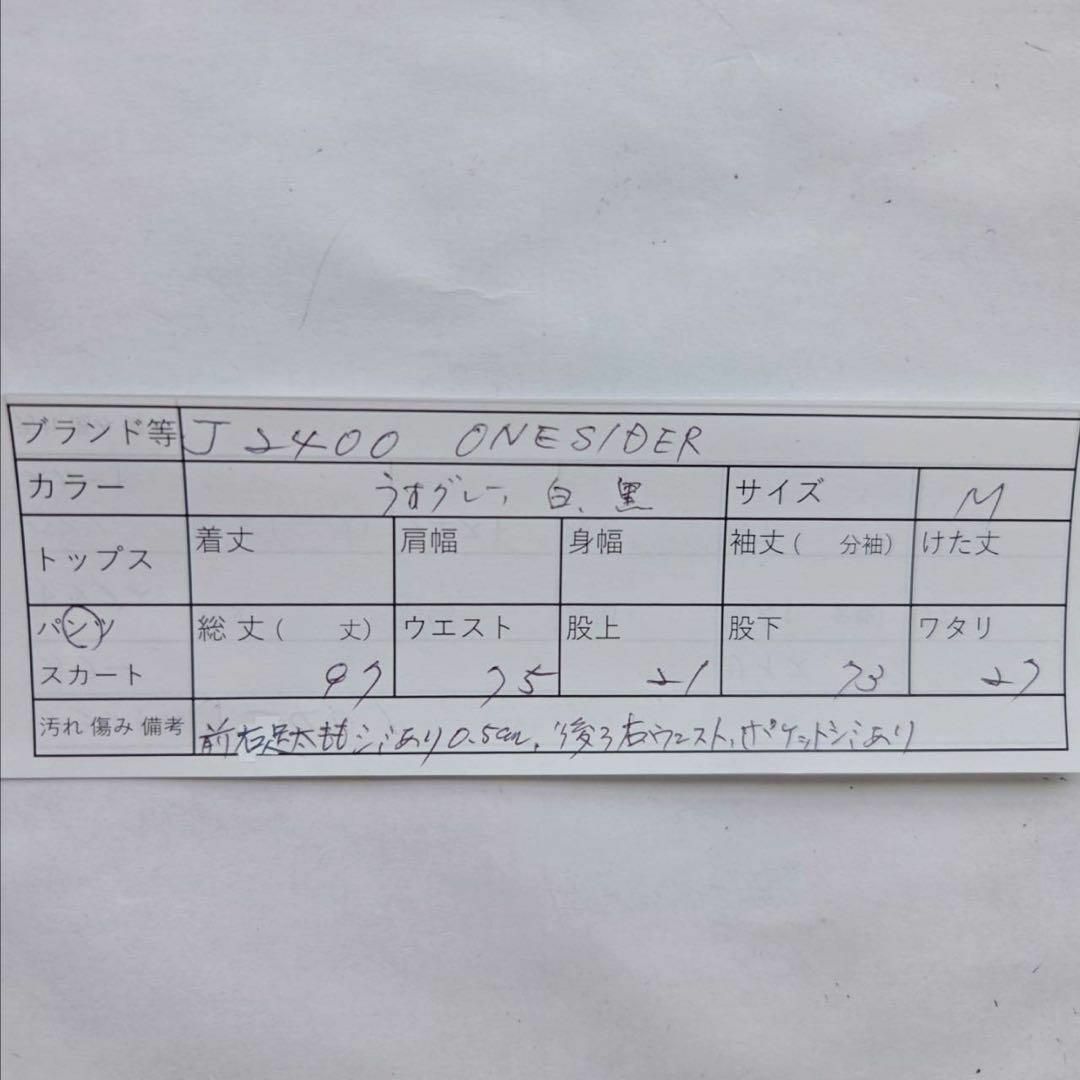 ブランド等 J2400 ONESIDER
カラー うすグレー、白、黒 サイズ M
トップス 着丈 肩幅 身幅 袖丈( 分袖) けた丈
パンツ 総丈( 丈) ウエスト 股上 股下 ワタリ
スカート 97 75 21 73 27
汚れ 傷み 備考 前右足太ももシミあり0.5cm、後ろ右ウエスト、ポケットシミあり